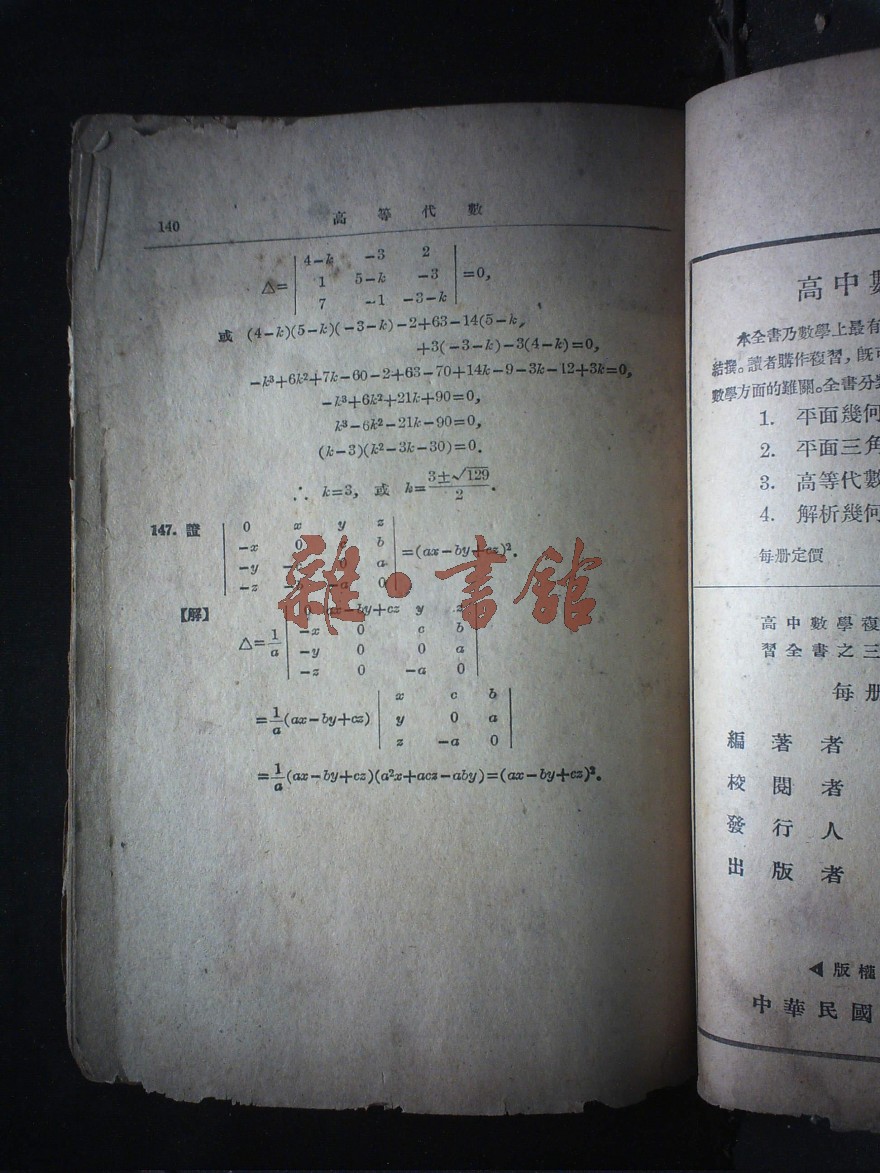 140 高等代數
△= | 4-k -3 2 |
| 1 5-k -3 | =0,
| 7 -1 -3-k |
或 (4-k)(5-k)(-3-k)-2+63-14(5-k,
+3(-3-k)-3(4-k)=0,
-k³+6k²+7k-60-2+63-70+14k-9-3k-12+3k=0,
-k³+6k²+21k+90=0,
k³-6k²-21k-90=0,
(k-3)(k²-3k-30)=0.
∴ k=3, 或 k=(3±√129)/2.
147. 證 | 0 x y z |
| -x 0 b |
| -y 0 a | =(ax-by+cz)².
| -z -a 0 |
【解】
△=1/a | 0 ax-by+cz y z |
| -x 0 c b |
| -y 0 0 a |
| -z 0 -a 0 |
=1/a(ax-by+cz) | x c b |
| y 0 a |
| z -a 0 |
=1/a(ax-by+cz)(a²x+acz-aby)=(ax-by+cz)².
雜·書館
高中數
本全書乃數學上最有
結撰。讀者購作複習，旣可
數學方面的難關。全書分
1. 平面幾何
2. 平面三角
3. 高等代數
4. 解析幾何
每册定價
高中數學復
習全書之三
每册
編著者
校閱者
發行人
出版者
◀版權
中華民國